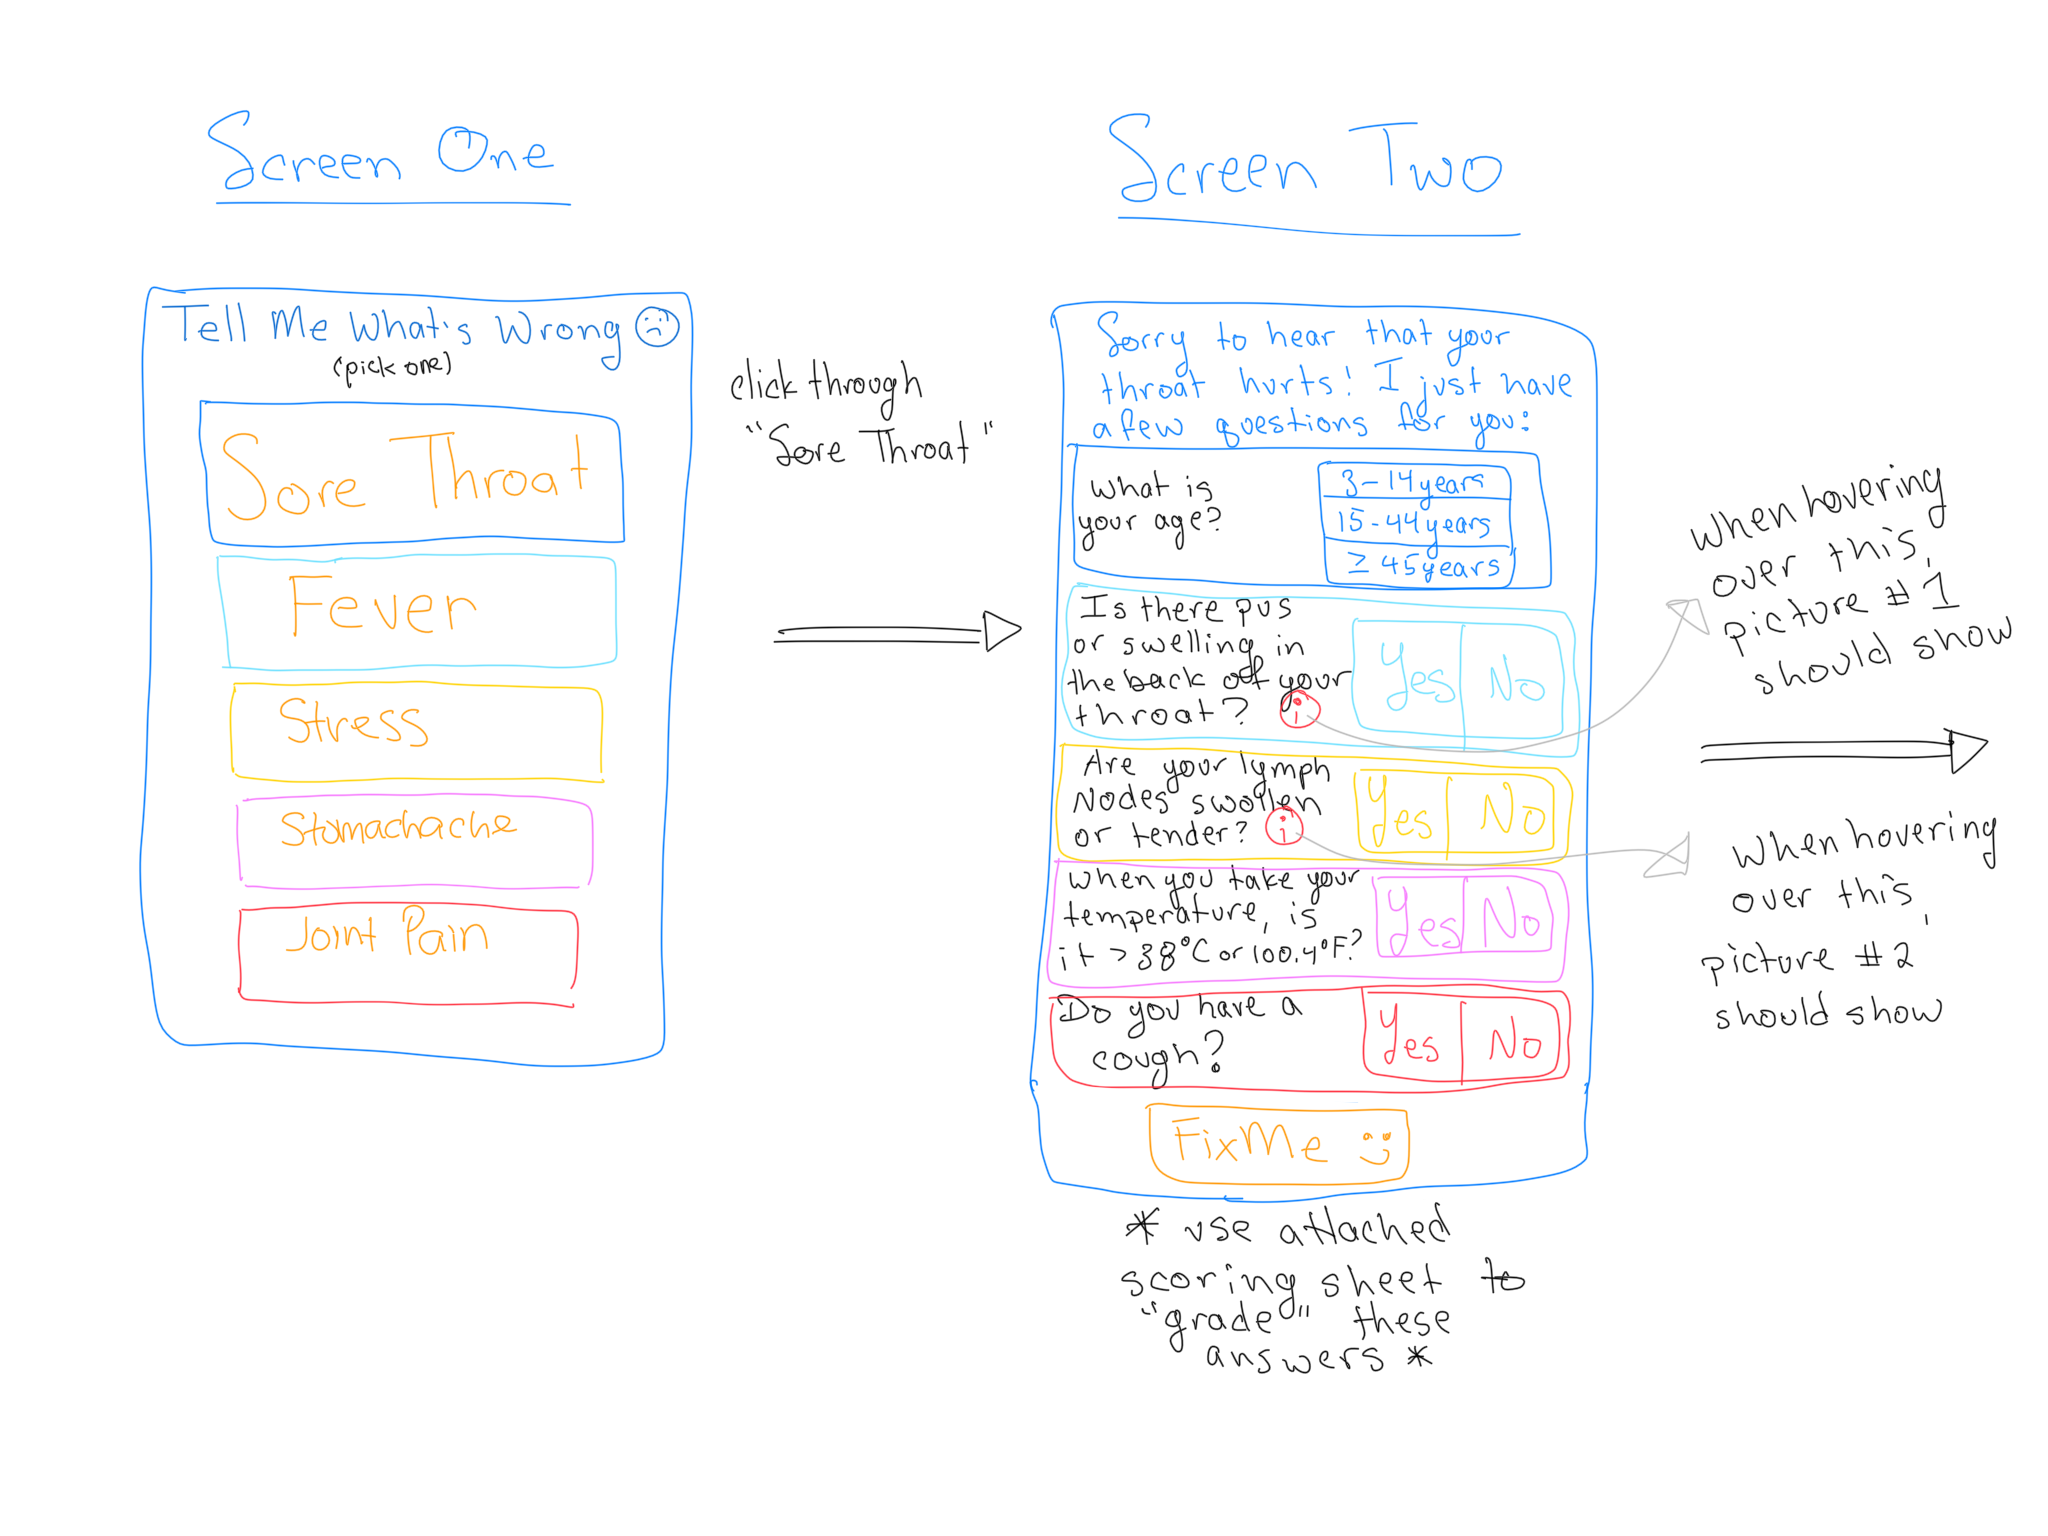 Screen One
Tell Me What's Wrong
(pick one)
Sore Throat
Fever
Stress
Stomachache
Joint Pain
click through
"Sore Throat"
Screen Two
Sorry to hear that your
throat hurts! I just have
a few questions for you:
What is
your age?
3-14 years
15-44 years
≥ 45 years
Is there pus
or swelling in
the back of your
throat? i
Yes No
Are your lymph
Nodes swollen
or tender? i
Yes No
When you take your
temperature, is
it >38°C or 100.4°F?
Yes No
Do you have a
cough?
Yes No
FixMe
* use attached
scoring sheet to
"grade" these
answers *
when hovering
over this,
picture #1
should show
when hovering
over this,
picture #2
should show